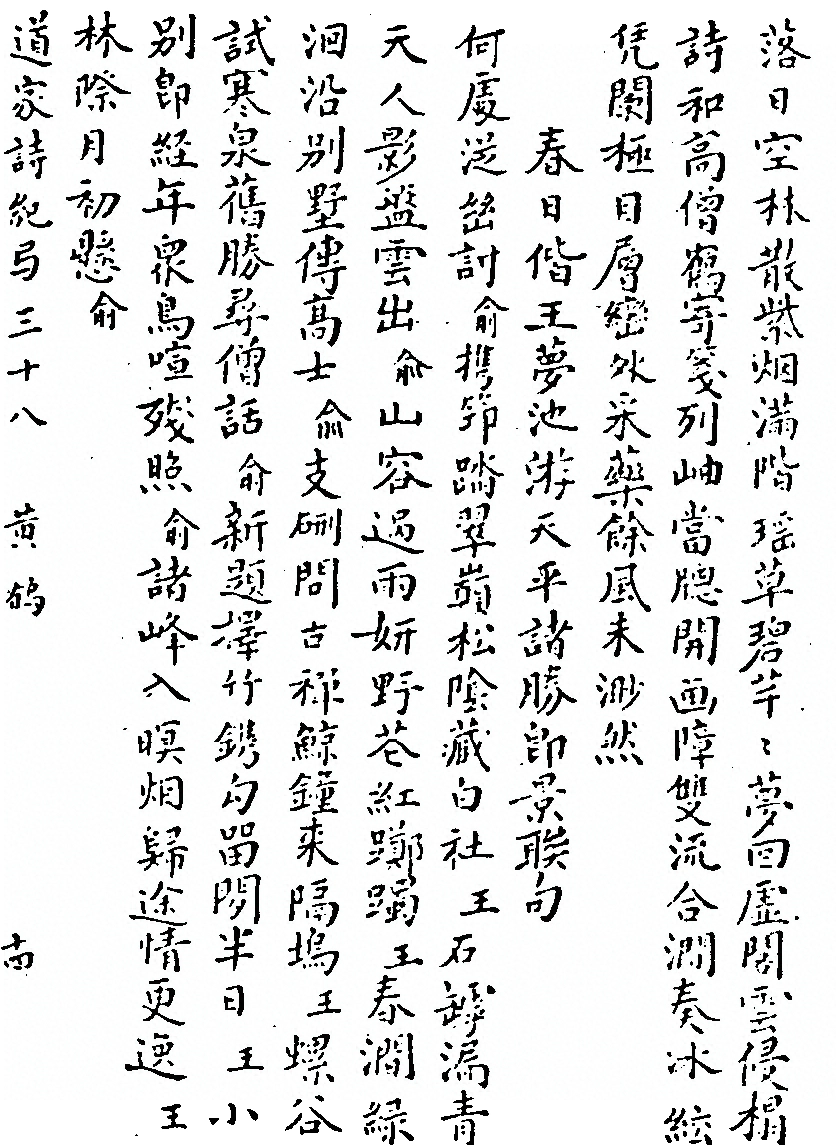 落日空林散紫烟滿階瑶草碧芊〻夢回虛閣雲侵榻
詩和高僧鶴寄箋列岫當牕開画障雙流合澗奏冰絃
凭闌極目層巒外采藥餘風未渺然
春日偕王夢池游天平諸勝即景聯句
何處淫幽討俞携筇踏翠嶺松陰藏白社王石罅漏青
天人影盤雲出俞山容過雨妍野花紅躑躅王春澗綠
洄沿別墅傳高士俞支硎問古禪鯨鐘来隔塢王螺谷
試寒泉舊勝尋僧話俞新題擇竹鐫勾留閒半日王小
別即経年衆鳥喧殘照俞諸峰入暝烟歸途情更逸王
林際月初懸俞
道家詩紀弓三十八 黄鶴 十四